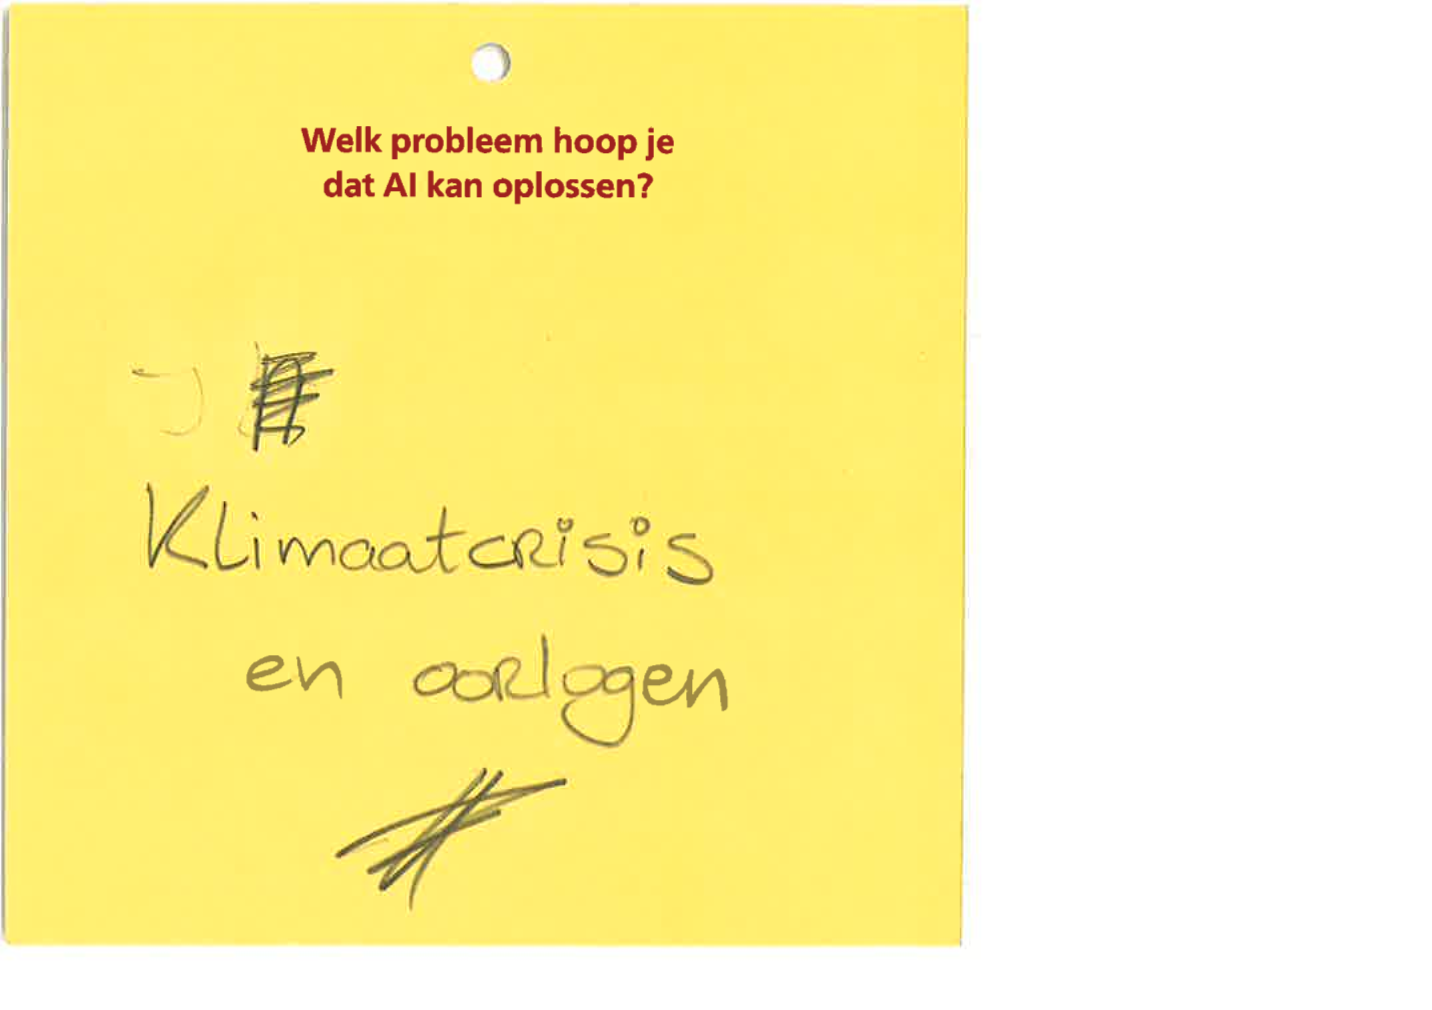 Welk probleem hoop je
dat AI kan oplossen?
Klimaatcrisis
en oorlogen